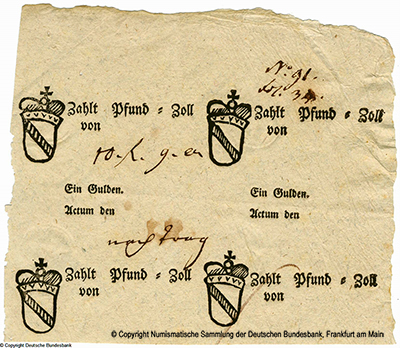 No 91.
Zahlt Pfund = Zoll Zahlt Pfund = Zoll
von von
Ein Gulden. Ein Gulden.
Actum den Actum den
Zahlt Pfund = Zoll Zahlt Pfund = Zoll
von von
© Copyright Numismatische Sammlung der Deutschen Bundesbank, Frankfurt am Main
© Copyright Deutsche Bundesbank